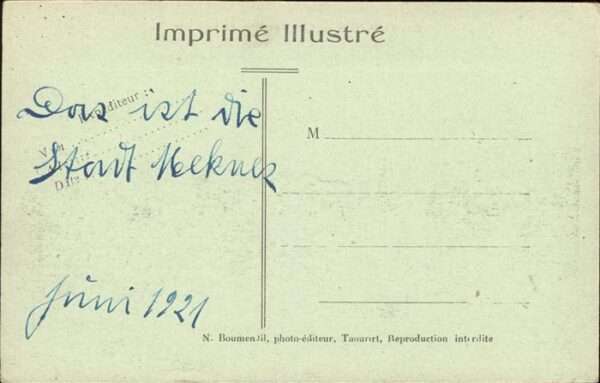 Imprimé Illustré
Das ist die
Stadt Meknez
Juni 1921
M
N. Boumendil, photo-éditeur, Taourirt, Reproduction interdite